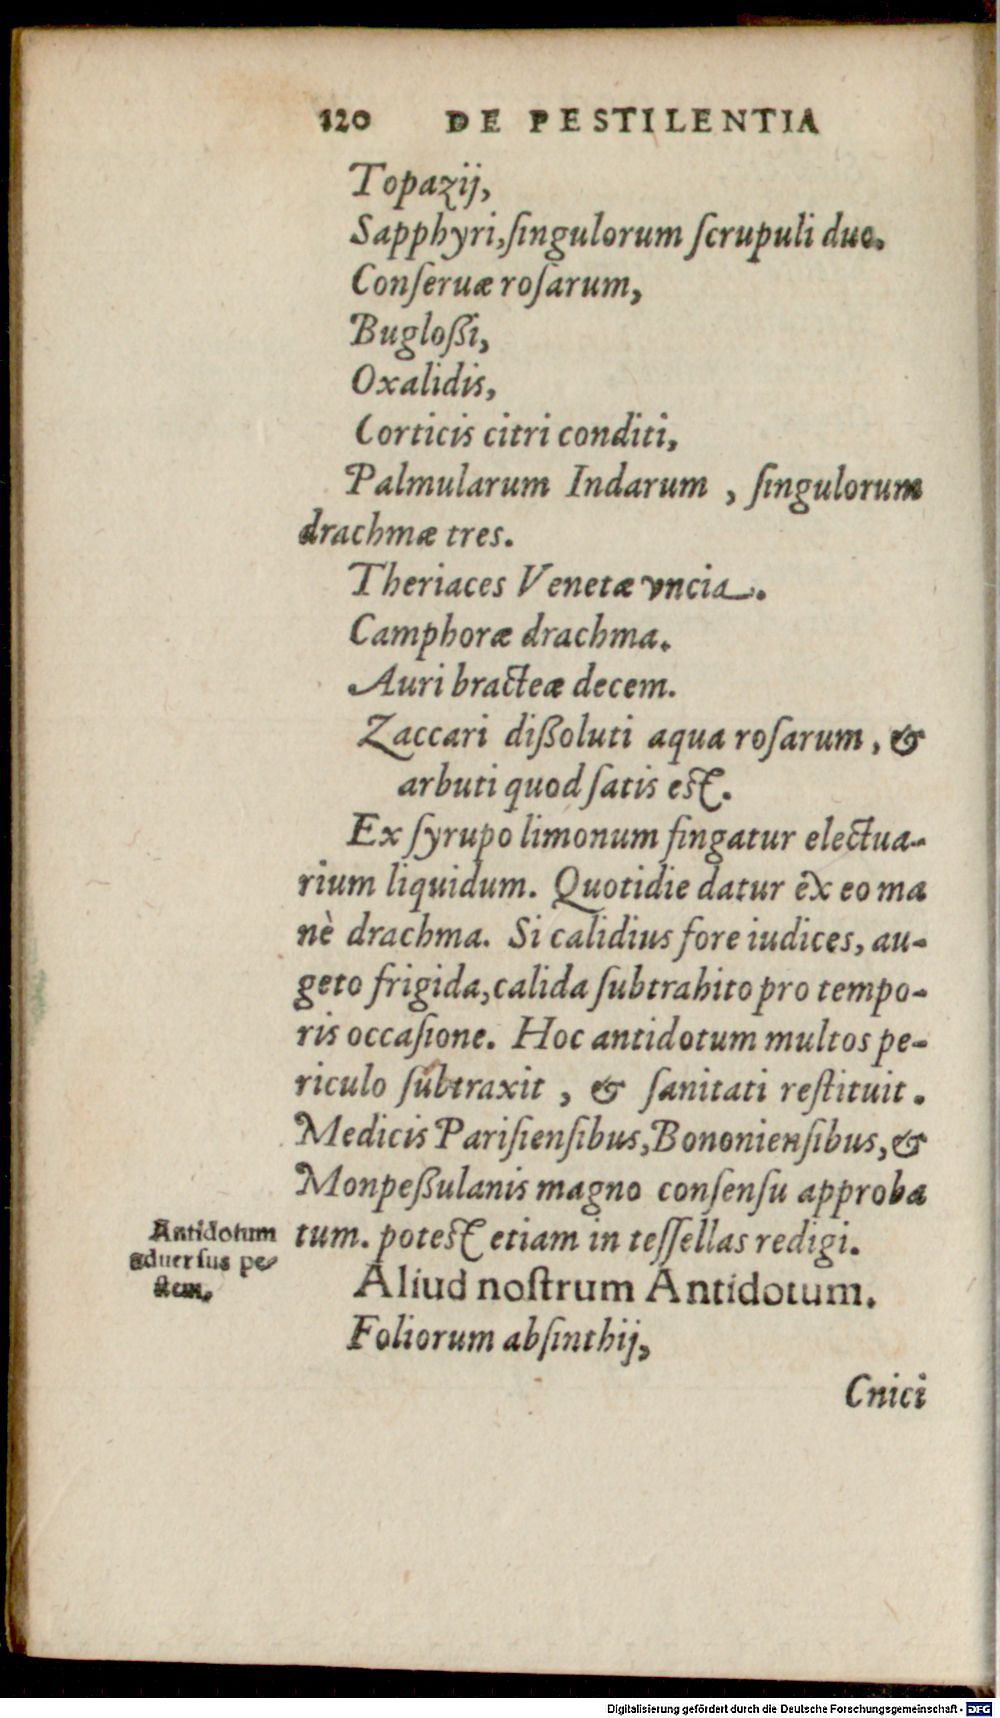 120 DE PESTILENTIA
Topazij,
Sapphyri, ſingulorum ſcrupuli duo.
Conſeruæ roſarum,
Bugloßi,
Oxalidis,
Corticis citri conditi,
Palmularum Indarum , ſingulorum
drachmæ tres.
Theriaces Venetæ vncia.
Camphoræ drachma.
Auri bracteæ decem.
Zaccari dißoluti aqua roſarum , &
arbuti quod ſatis est.
Ex ſyrupo limonum fingatur electua-
rium liquidum. Quotidie datur ex eo ma
nè drachma. Si calidius fore iudices, au-
geto frigida, calida ſubtrahito pro tempo-
ris occaſione. Hoc antidotum multos pe-
riculo ſubtraxit , & ſanitati reſtituit .
Medicis Pariſienſibus, Bononienſibus, &
Monpeßulanis magno conſenſu approba
tum. potest etiam in teſſellas redigi.
Antidotum
aduerſus pe-
ſtem.
Aliud noſtrum Antidotum.
Foliorum abſinthij,
Cnici
Digitalisierung gefördert durch die Deutsche Forschungsgemeinschaft - DFG